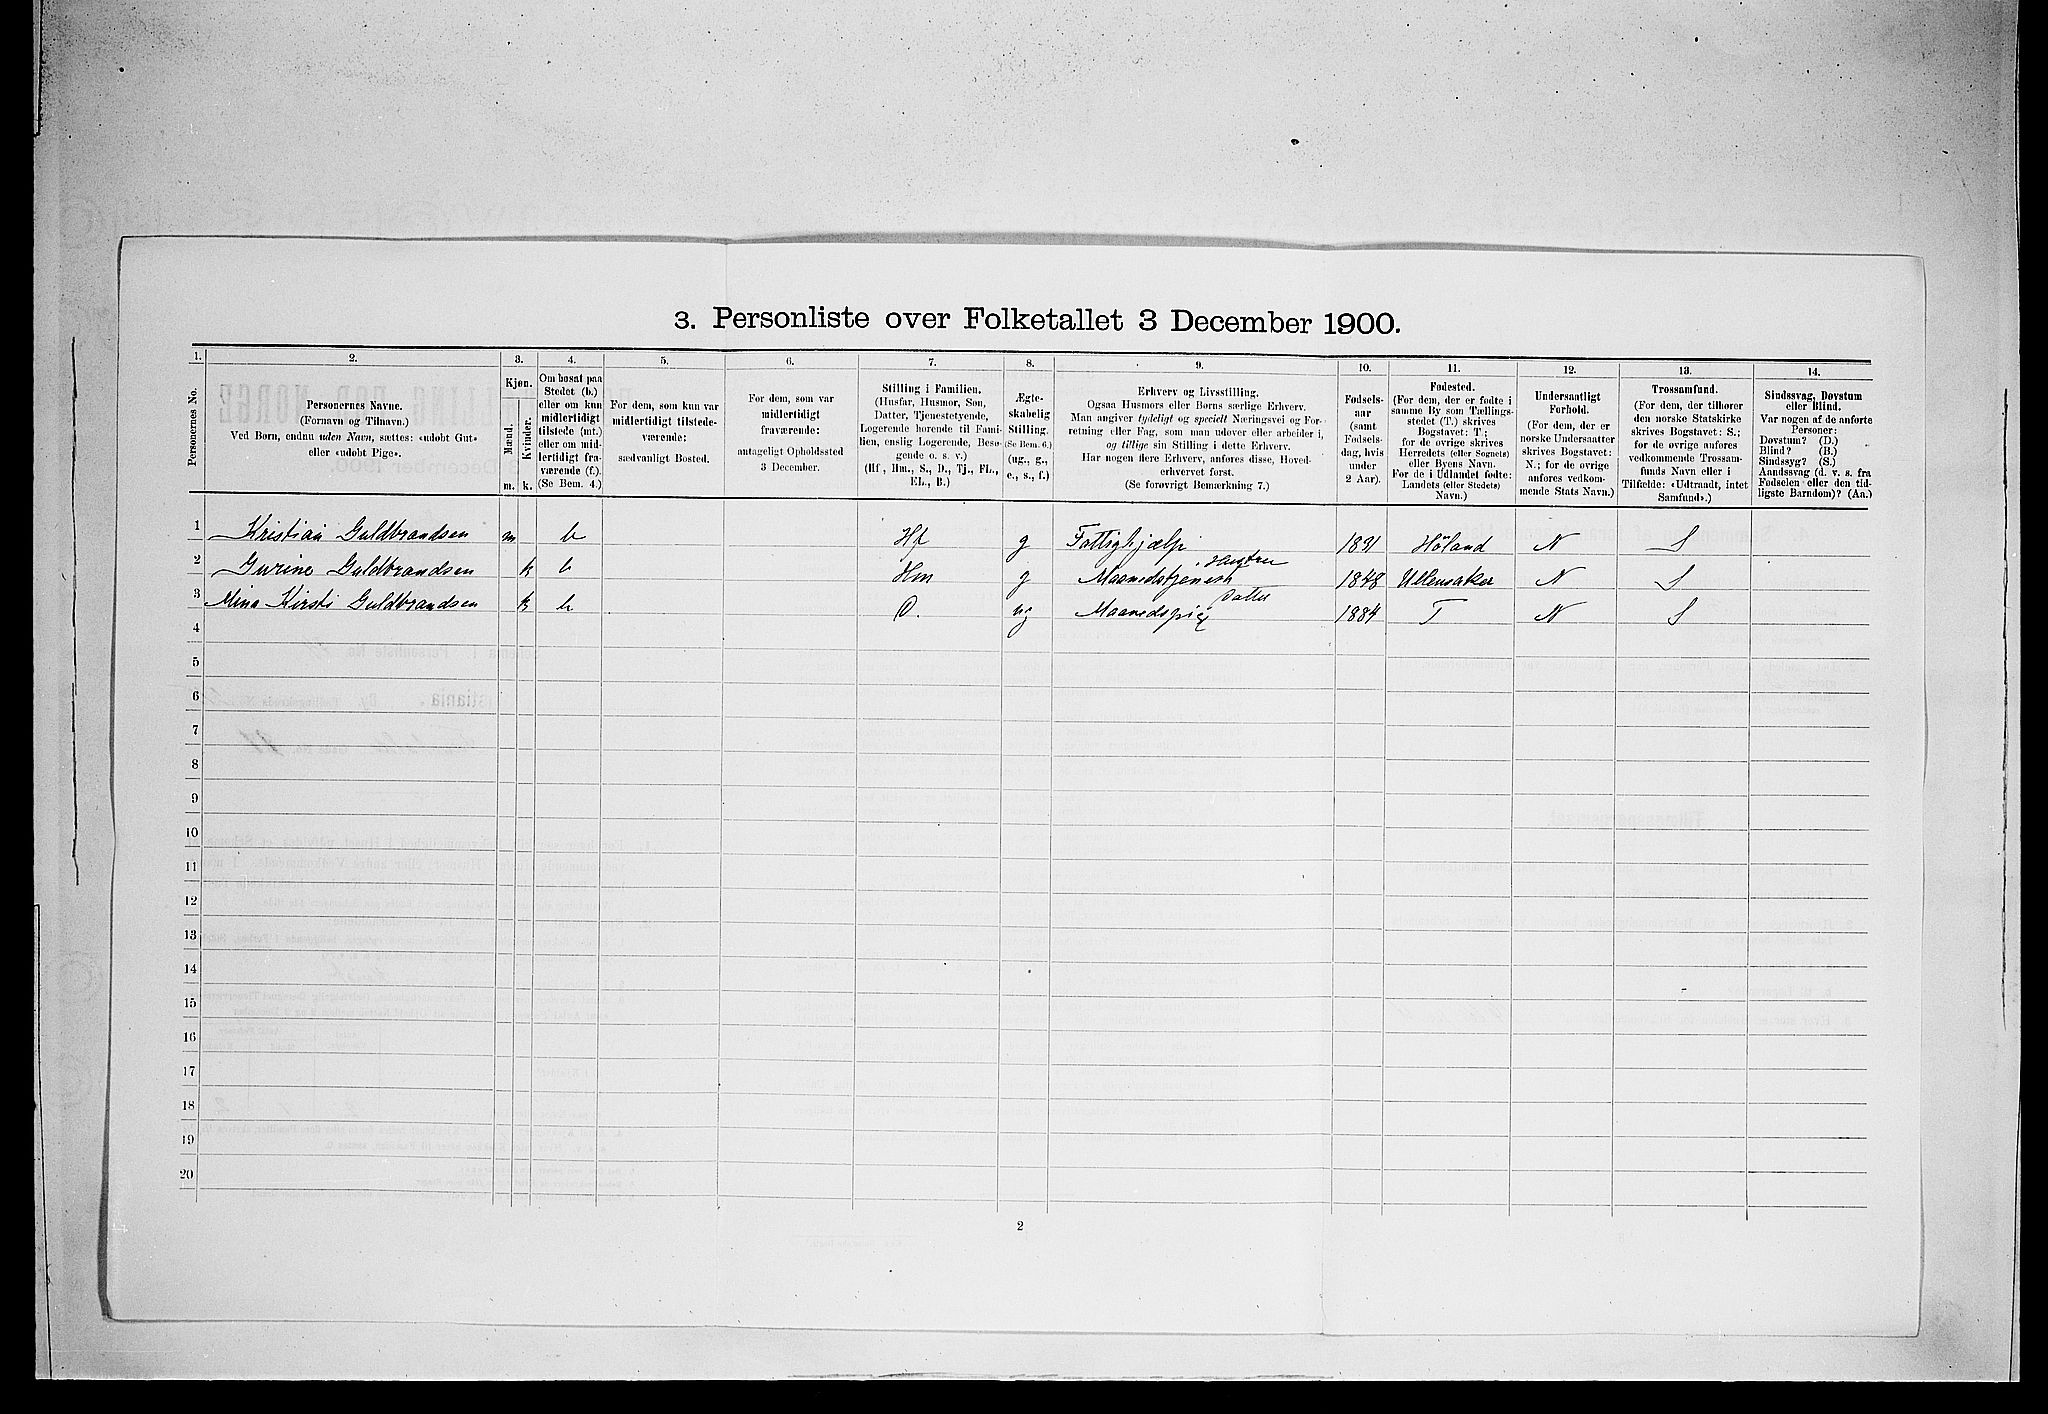 3. Personliste over Folketallet 3 December 1900.
1. 2. 3. 4. 5. 6. 7. 8. 9. 10. 11. 12. 13. 14.
Personernes No.
Personernes Navne.
(Fornavn og Tilnavn.)
Ved Børn, endnu uden Navn, sættes: «udøbt Gut»
eller «udøbt Pige».
Kjøn.
Mænd.
Kvinder.
m. k.
Om bosat paa
Stedet (b.)
eller om kun
midlertidigt
tilstede (mt.)
eller om mid-
lertidigt fra-
værende (f.).
(Se Bem. 4.)
For dem, som kun var
midlertidigt tilstede-
værende:
sædvanligt Bosted.
For dem, som var
midlertidigt
fraværende:
antageligt Opholdssted
3 December.
Stilling i Familien.
(Husfar, Husmor, Søn,
Datter, Tjenestetyende,
Logerende hørende til Fami-
lien, enslig Logerende, Besø-
gende o. s. v.)
(Hf., Hm., S., D., Tj., FL.,
EL., B.)
Ægte-
skabelig
Stilling.
(Se Bem. 6.)
(ug., g.,
e., s., f.)
Erhverv og Livsstilling.
Ogsaa Husmors eller Børns særlige Erhverv.
Man angiver tydeligt og specielt Næringsvei og For-
retning eller Fag, som man udøver eller arbeider i,
og tillige sin Stilling i dette Erhverv.
Har nogen flere Erhverv, anføres disse, Hoved-
erhvervet først.
(Se forøvrigt Bemærkning 7.)
Fødsels-
aar
(samt
Fødsels-
dag, hvis
under
2 Aar).
Fødested.
(For dem, der er fødte i
samme By som Tællings-
stedet (T.) skrives
Bogstavet: T.;
for de øvrige skrives
Herredets (eller Sognets)
eller Byens Navn.
For de i Udlandet fødte:
Landets (eller Stedets)
Navn.)
Undersaatligt
Forhold.
(For dem, der er
norske Undersaatter
skrives Bogstavet:
N.; for de øvrige
anføres vedkom-
mende Stats Navn.)
Trossamfund.
(For dem, der tilhører
den norske Statskirke
skrives Bogstavet: S.;
for de øvrige anføres
vedkommende Trossam-
funds Navn eller i
Tilfælde: «Udtraadt, intet
Samfund».)
Sindssvag, Døvstum
eller Blind.
Var nogen af de anførte
Personer:
Døvstum? (D.)
Blind? (B.)
Sindssyg? (S.)
Aandssvag (d. v. s. fra
Fødselen eller den tid-
ligste Barndom)? (Aa.)
1 Kristian Guldbrandsen m b Hf g Fattighjælp 1831 Höland N S
2 Gurine Guldbrandsen k b Hm g Maanedstjenest Hustru 1848 Ullensaker N S
3 Mina Kirsti Guldbrandsen k b D. ug Maanedspige Datter 1884 T N S
4
5
6
7
8
9
10
11
12
13
14
15
16
17
18
19
20
2